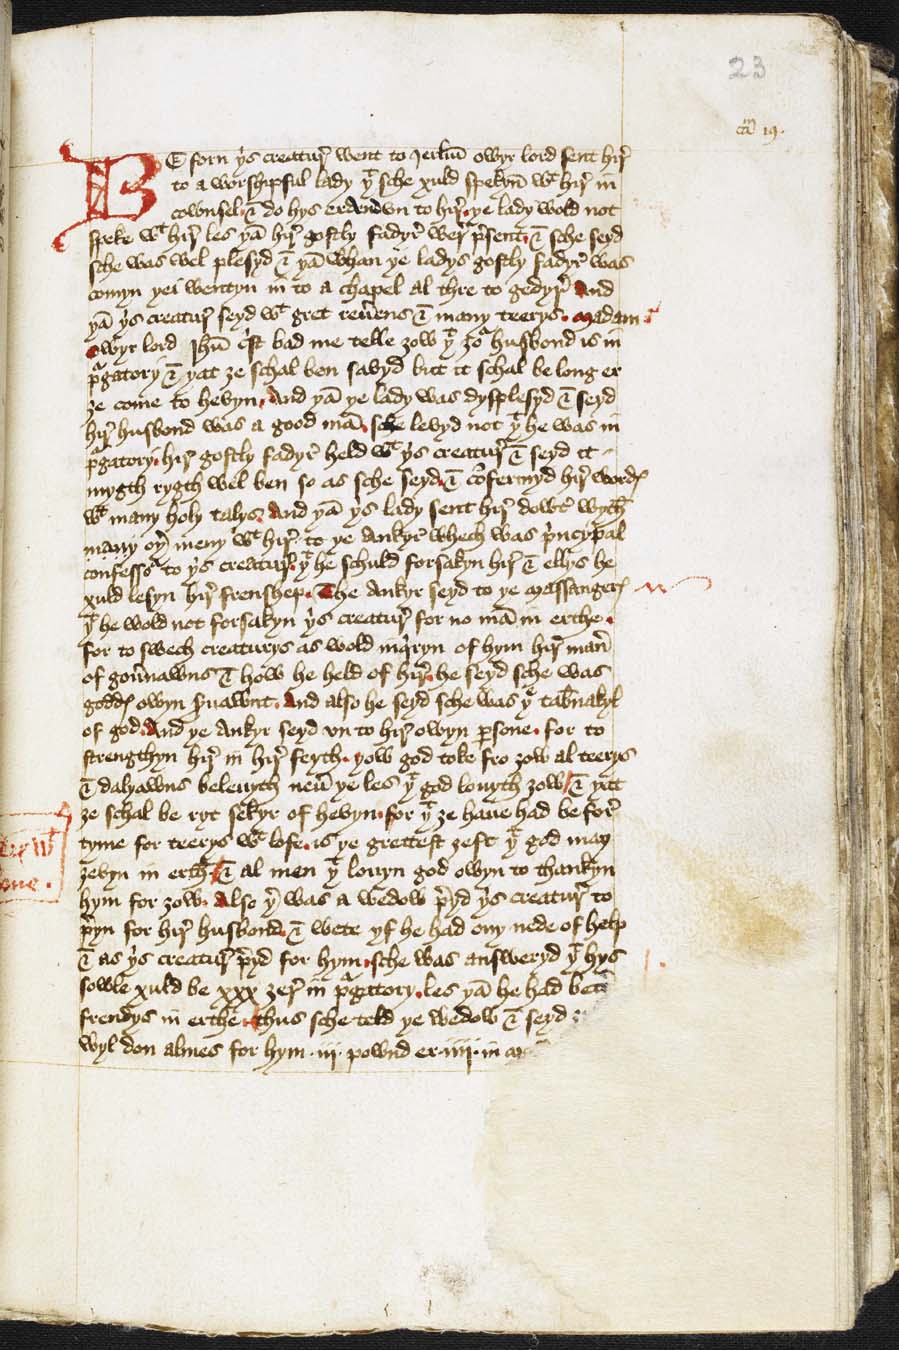 23
cam 19.
BE forn ys creatur went to Jerlm owyr lord sent hir
to a worshipful lady yt sche xuld spekyn wt hir in
cownsel. & do hys erdendvn to hir. ye lady wold not
speke wt hir les yā hir gostly fadyr wer present. & sche seyd
sche was wel plesyd & yā whan ye ladys gostly fadyr was
comyn yei wentyn in to a chapel al thre to gedyr And
yā ys creatur seyd wt gret reuerens & many teerys. Madam
Owyr lord Jhū crist bad me telle zow yt zor husbond is in
purgatory & yat ze schal ben savyd but it schal be long er
ze come to hevyn. And yā ye lady was dysplesyd & seyd
hir husbond was a good mā. sche levyd not yt he was in
purgatory. hir gostly fadyr held wt ys creatur & seyd it
mygth rygth wel ben so as sche seyd. & cōfermyd hir wordes
wt many holy talys. And yā ys lady sent hir dowtr wyth
many oyr meny wt hir to ye Ankyr whech was principal
confessor to ys creatur. yt he schuld forsakyn hir & ellys he
xuld lesyn hir frenshep. The Ankyr seyd to ye massangers
yt he wold not forsakyn ys creatur for no mā in erthe.
for to swech creaturys as wold inqryn of hym hir maner
of gouernawns & how he held of hir. he seyd sche was
goddes owyn seruawnt. And also he seyd sche was ye tabernakyl
of god. And ye Ankyr seyd vn to hir owyn persone. for to
strengthyn hir in hir feyth. yow god toke fro zow al teerys
& dalyawns beleuyth neuer ye les yt god louyth zow & yat
ze schal be ryt sekyr of hevyn. for yt ze haue had be for
tyme for teerys wt lofe. is ye grettest zeft yt god may
zevyn in erth. & al men yt louyn god owyn to thankyn
hym for zow. Also yr was a wedow preyd ys creatur to
preyn for hir husbond. & wete yf he had ony nede of help
& as ys creatur preyd for hym. sche was answeryd yt hys
sowle xuld be xxx zer in purgatory. les yā he had bet
frendys in erthe. thus sche teld ye wedow & seyd
wyl don almes for hym. iij. pownd er. iiij. in